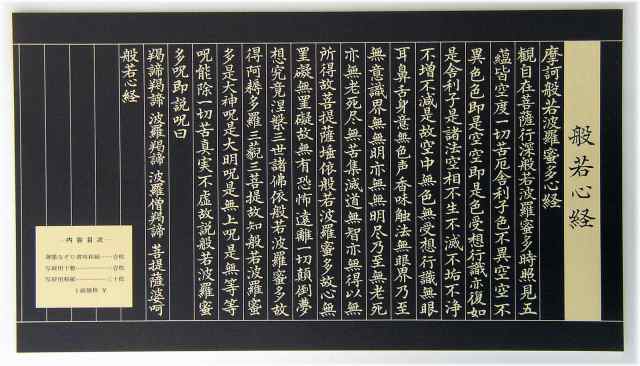 般若心経
摩訶般若波羅蜜多心経
観自在菩薩行深般若波羅蜜多時照見五
蘊皆空度一切苦厄舎利子色不異空空不
異色色即是空空即是色受想行識亦復如
是舎利子是諸法空相不生不滅不垢不浄
不増不減是故空中無色無受想行識無眼
耳鼻舌身意無色声香味触法無眼界乃至
無意識界無無明亦無無明尽乃至無老死
亦無老死尽無苦集滅道無智亦無得以無
所得故菩提薩埵依般若波羅蜜多故心無
罣礙無罣礙故無有恐怖遠離一切顛倒夢
想究竟涅槃三世諸佛依般若波羅蜜多故
得阿耨多羅三藐三菩提故知般若波羅蜜
多是大神呪是大明呪是無上呪是無等等
呪能除一切苦真実不虚故説般若波羅蜜
多呪即説呪曰
羯諦羯諦 波羅羯諦 波羅僧羯諦 菩提薩婆呵
般若心経
内容目次
壱枚
写経用下敷 壱枚
写経用 二十枚
¥